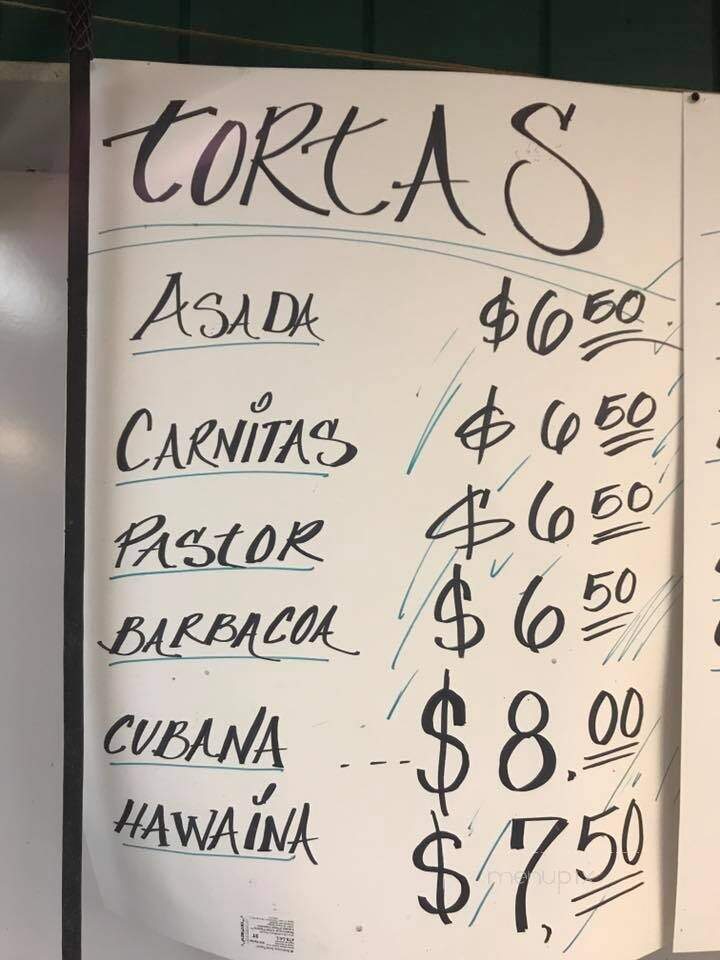 TORTAS
ASADA $6 50
CARNITAS $6 50
PASTOR $6 50
BARBACOA $6 50
CUBANA --- $8.00
HAWAINA $7,50
menupix